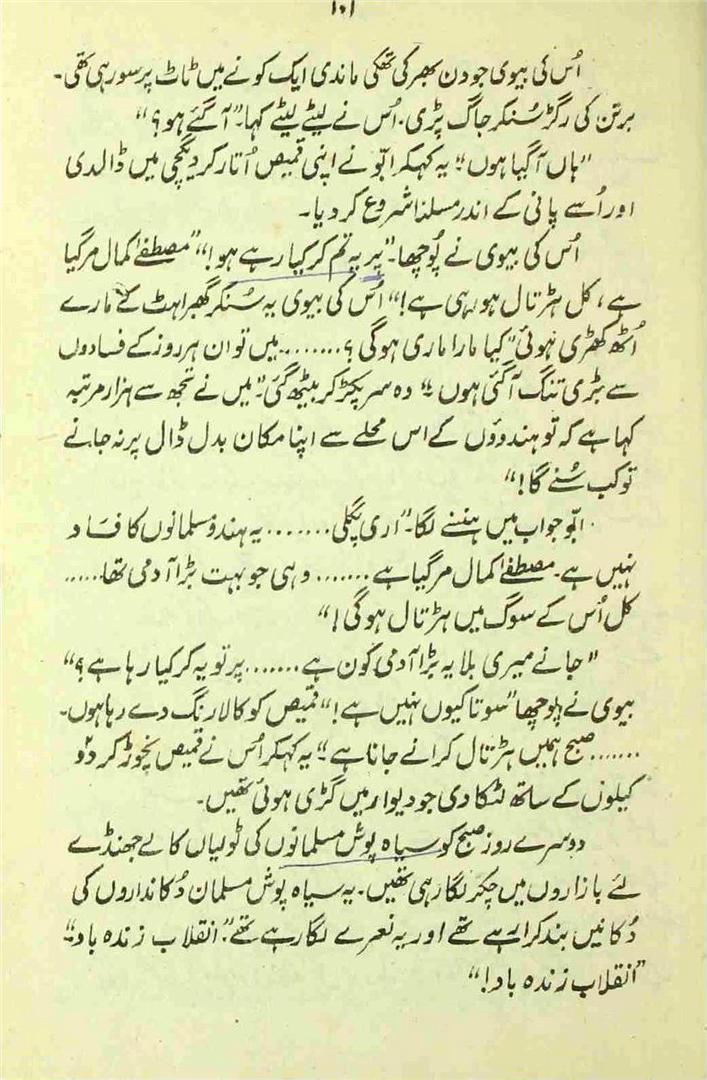 ۱۰۱
اُس کی بیوی جو دن بھر کی تھکی ماندی ایک کونے میں ٹاٹ پر سو رہی تھی۔
برتن کی رگڑ سُنکر جاگ پڑی۔ اُس نے لیٹے لیٹے کہا۔ "آ گئے ہو؟"
"ہاں آ گیا ہوں"۔ یہ کہکر ابّو نے اپنی قمیص اُتار کر دیگچی میں ڈالدی
اور اُسے پانی کے اندر مسلنا شروع کر دیا۔
اُس کی بیوی نے پُوچھا۔ "پر یہ تم کر کیا رہے ہو!" "مصطفےٰ کمال مر گیا
ہے، کل ہڑتال ہو رہی ہے!" اُس کی بیوی یہ سُنکر گھبراہٹ کے مارے
اُٹھ کھڑی ہُوئی "کیا مارا ماری ہوگی؟ ........ میں تو ان ہر روز کے فسادوں
سے بڑی تنگ آ گئی ہوں"۔ وہ سر پکڑ کر بیٹھ گئی۔ "میں نے تجھ سے ہزار مرتبہ
کہا ہے کہ تو ہندوؤں کے اس محلے سے اپنا مکان بدل ڈال پر نہ جانے
تو کب سُنے گا!"
ابّو جواب میں ہنسنے لگا۔ "اری پگلی ....... یہ ہندو مسلمانوں کا فساد
نہیں ہے۔ مصطفےٰ کمال مر گیا ہے ....... وہی جو بہت بڑا آدمی تھا ......
کل اُس کے سوگ میں ہڑتال ہوگی!"
"جانے میری بلا یہ بڑا آدمی کون ہے ....... پر تو یہ کر کیا رہا ہے؟"
بیوی نے پوچھا "سوتا کیوں نہیں ہے!" "قمیص کو کالا رنگ دے رہا ہوں۔
....... صبح ہمیں ہڑتال کرانے جانا ہے"۔ یہ کہکر اُس نے قمیص نچوڑ کر دو
کیلوں کے ساتھ لٹکا دی جو دیوار میں گڑی ہوئی تھیں۔
دوسرے روز صبح کو سیاہ پوش مسلمانوں کی ٹولیاں کالے جھنڈے
لئے بازاروں میں چکر لگا رہی تھیں۔ یہ سیاہ پوش مسلمان دُکانداروں کی
دُکانیں بند کرا رہے تھے اور یہ نعرے لگا رہے تھے۔ "انقلاب زندہ باد"۔
"انقلاب زندہ باد!"